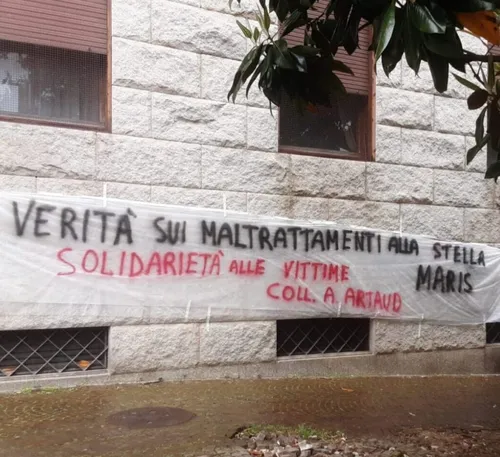 VERITÀ SUI MALTRATTAMENTI ALLA STELLA
MARIS
SOLIDARIETÀ ALLE VITTIME
COLL. A. ARTAUD